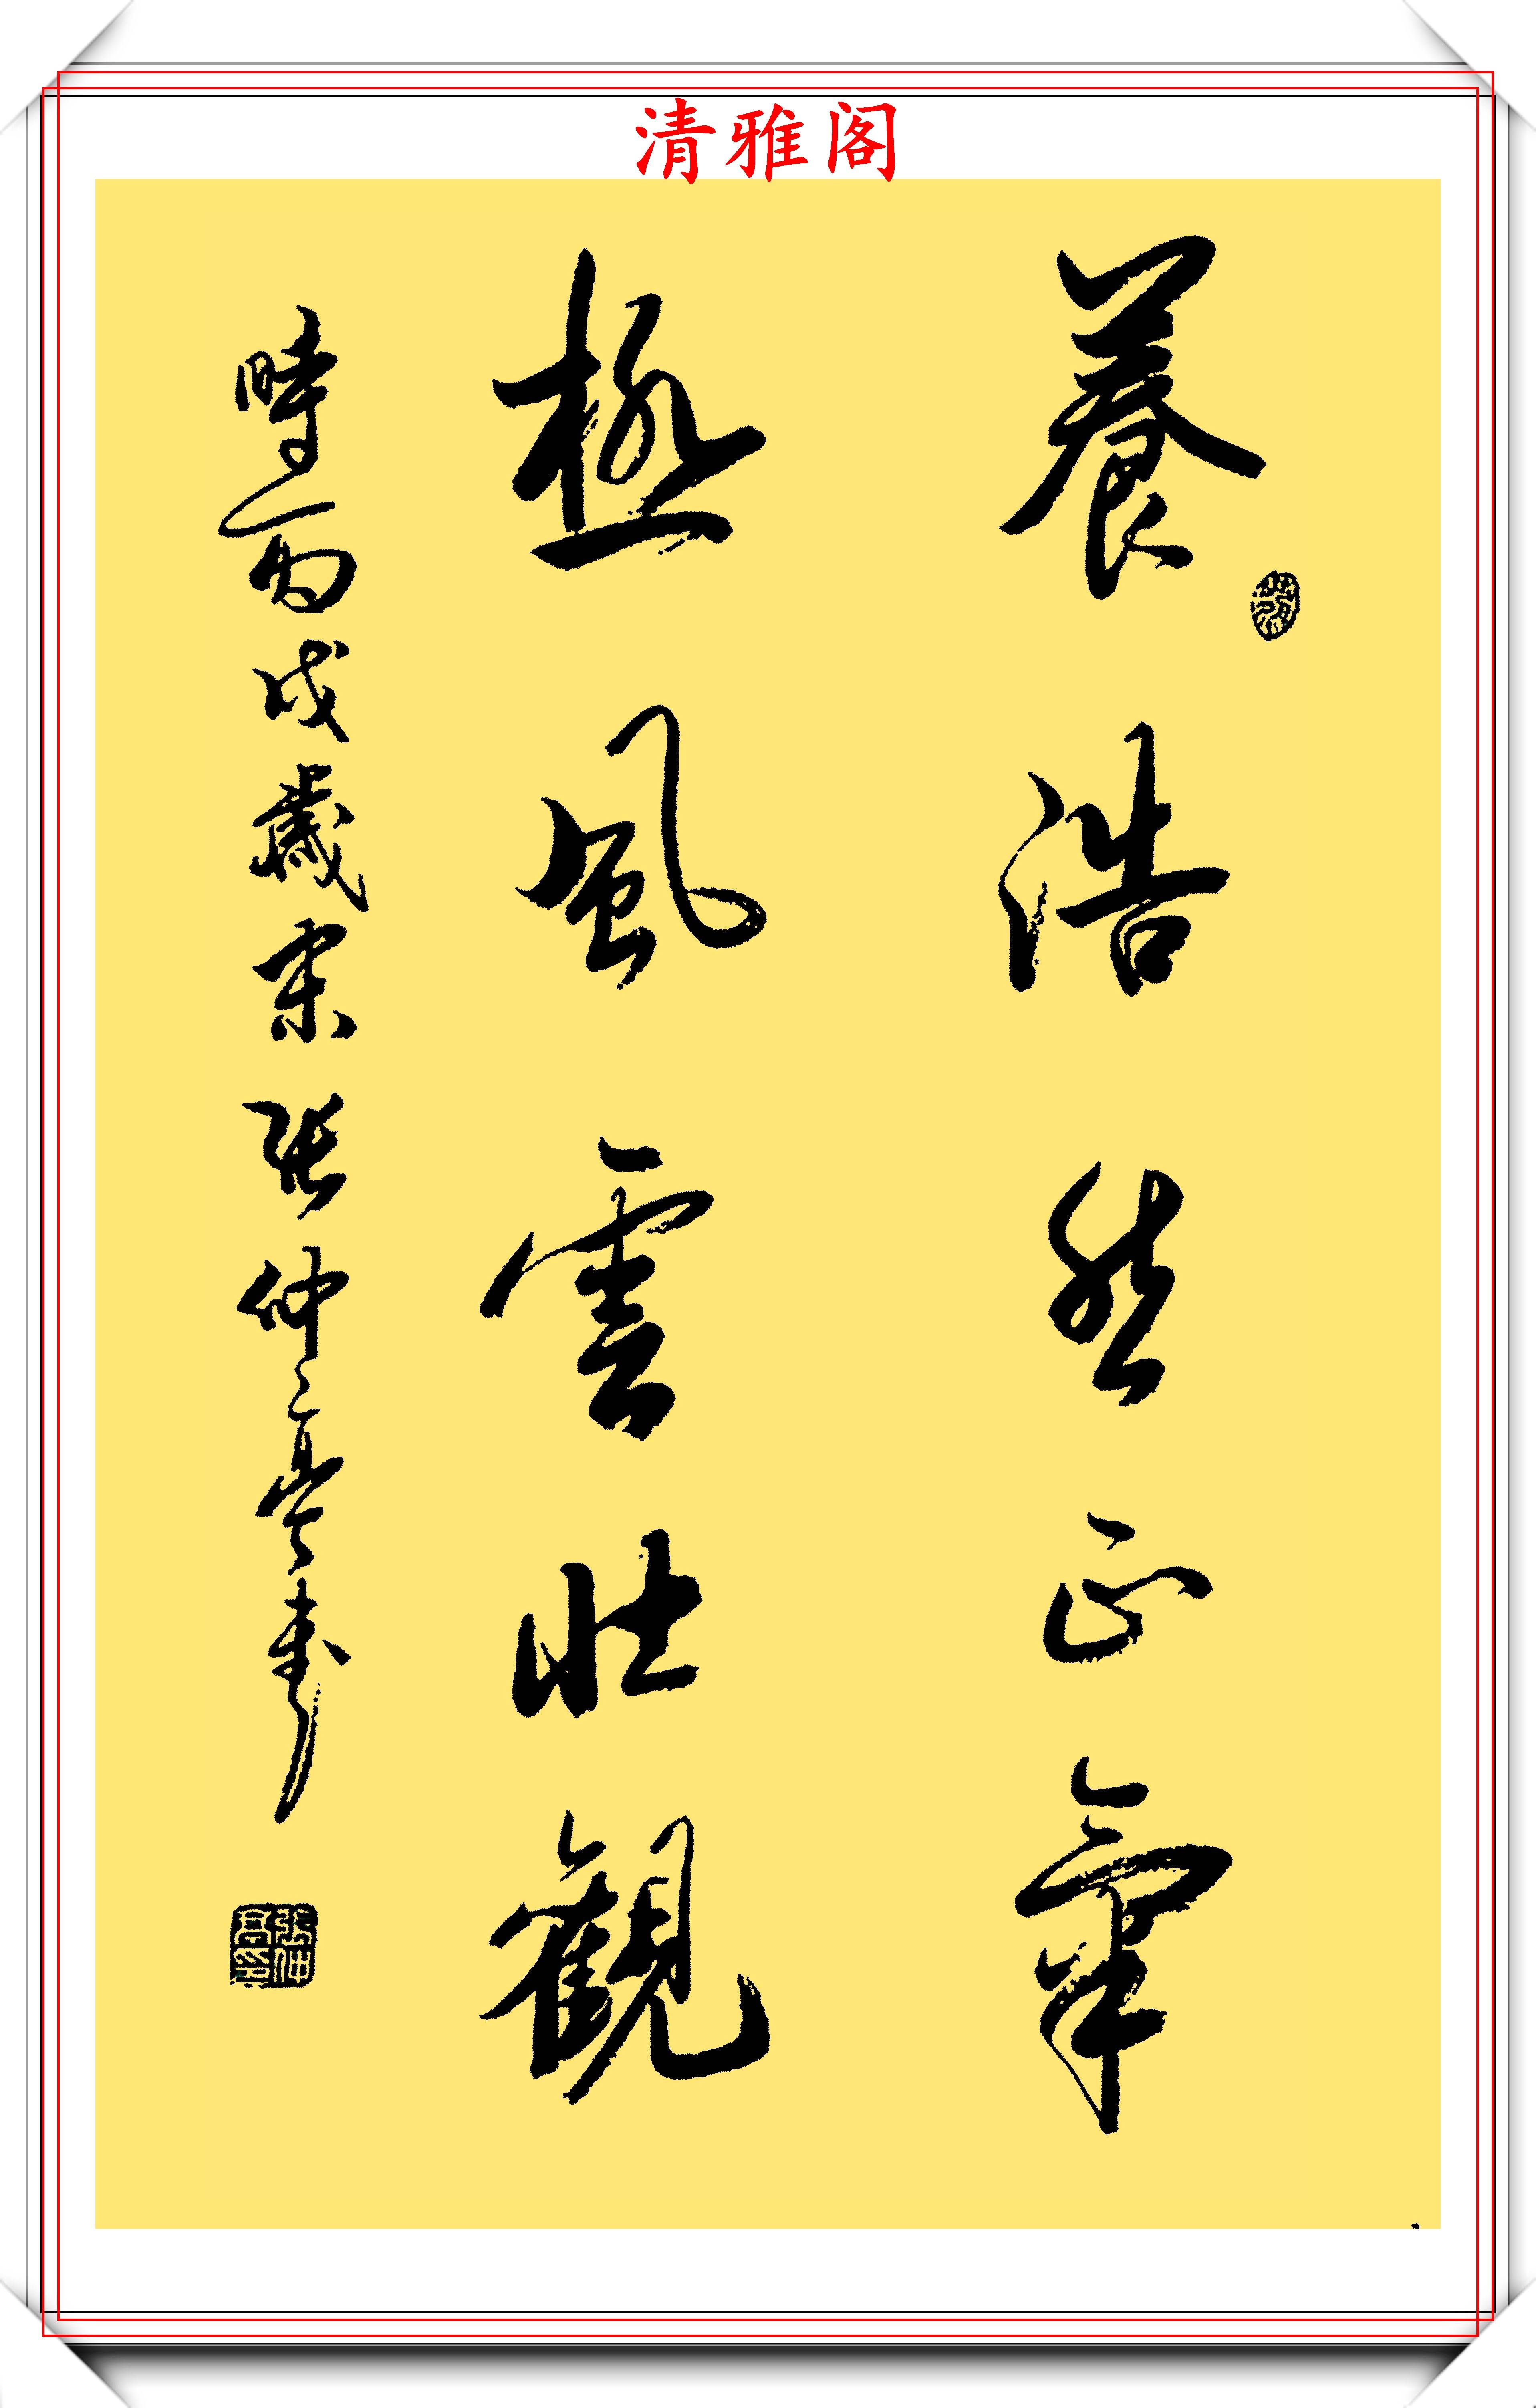 清雅阁
養浩然正氣
極風雲壯観
時丙戌歲末張仲亭書